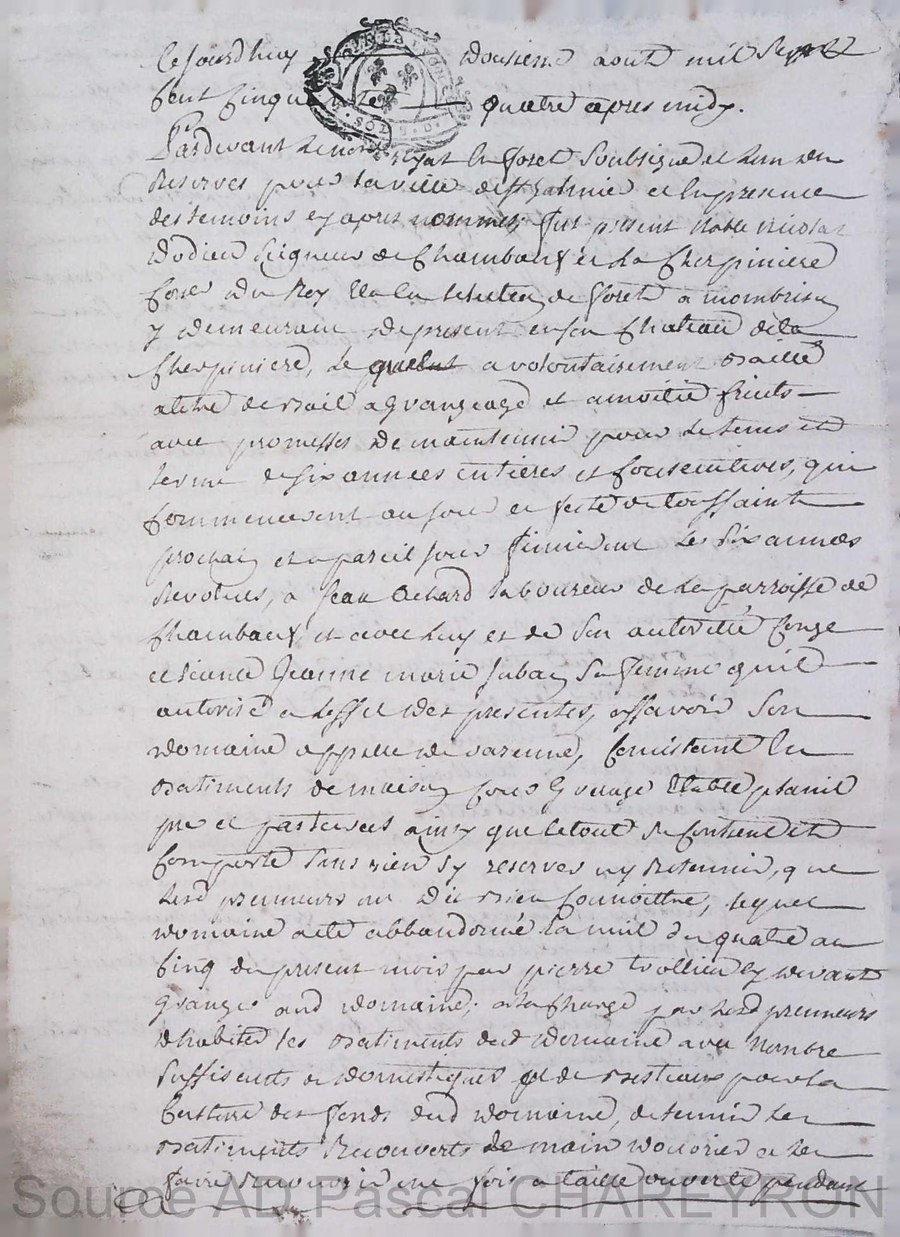 Cejourdhuy douzieme aout mil sept
Cent Cinquante quatre apres midy.
Pardevant le no.re royal en forest soubsigné et l'un des
reserves pour la ville de St galmier et en presence
des temoins cy apres nommés; fut present noble nicolas
Seigneur de Chambaux et La Cherpiniere
Con.er du Roy en la de forest a mombrison
y demeurant de present en son Chateau de la
Cherpiniere, lequel a volontairement baillé
a titre de bail a grangeage et a moitié fruits
avec promesses de maintenir pour le tems et
terme de six années entieres et Consecutives, qui
Commenceront au jour et feste de toussaint
prochain et a pareil jour finiront les six années
revolues, a Jean laboureur de la parroisse de
Chambaux et avec luy et de son autorité Conge
et licence Jeanne marie sa femme quil
autorise a leffet des presentes, assavoir Son
domaine appellé de varenne, Consistant en
batiments de maison Cour grange Etable
pré et ainsy que le tout se Contient et
Comporte sans rien s'y reserver ny retenir, que
lesd preneurs ont dit bien Connoittre, lequel
domaine a été abbandonné la nuit du quatre au
Cinq du present mois par pierre cy devant
granger aud domaine; a la Charge par lesd preneurs
d'habiter les batiments dud domaine avec nombre
suffisents de domestiques et de bestiaux pour la
Culture des fonds dud domaine, de tenir les
batiments recouverts de main d'ouvrier et les
faire recouvrir une fois a taille ouverte pendant
Source AD Pascal CHAREYRON